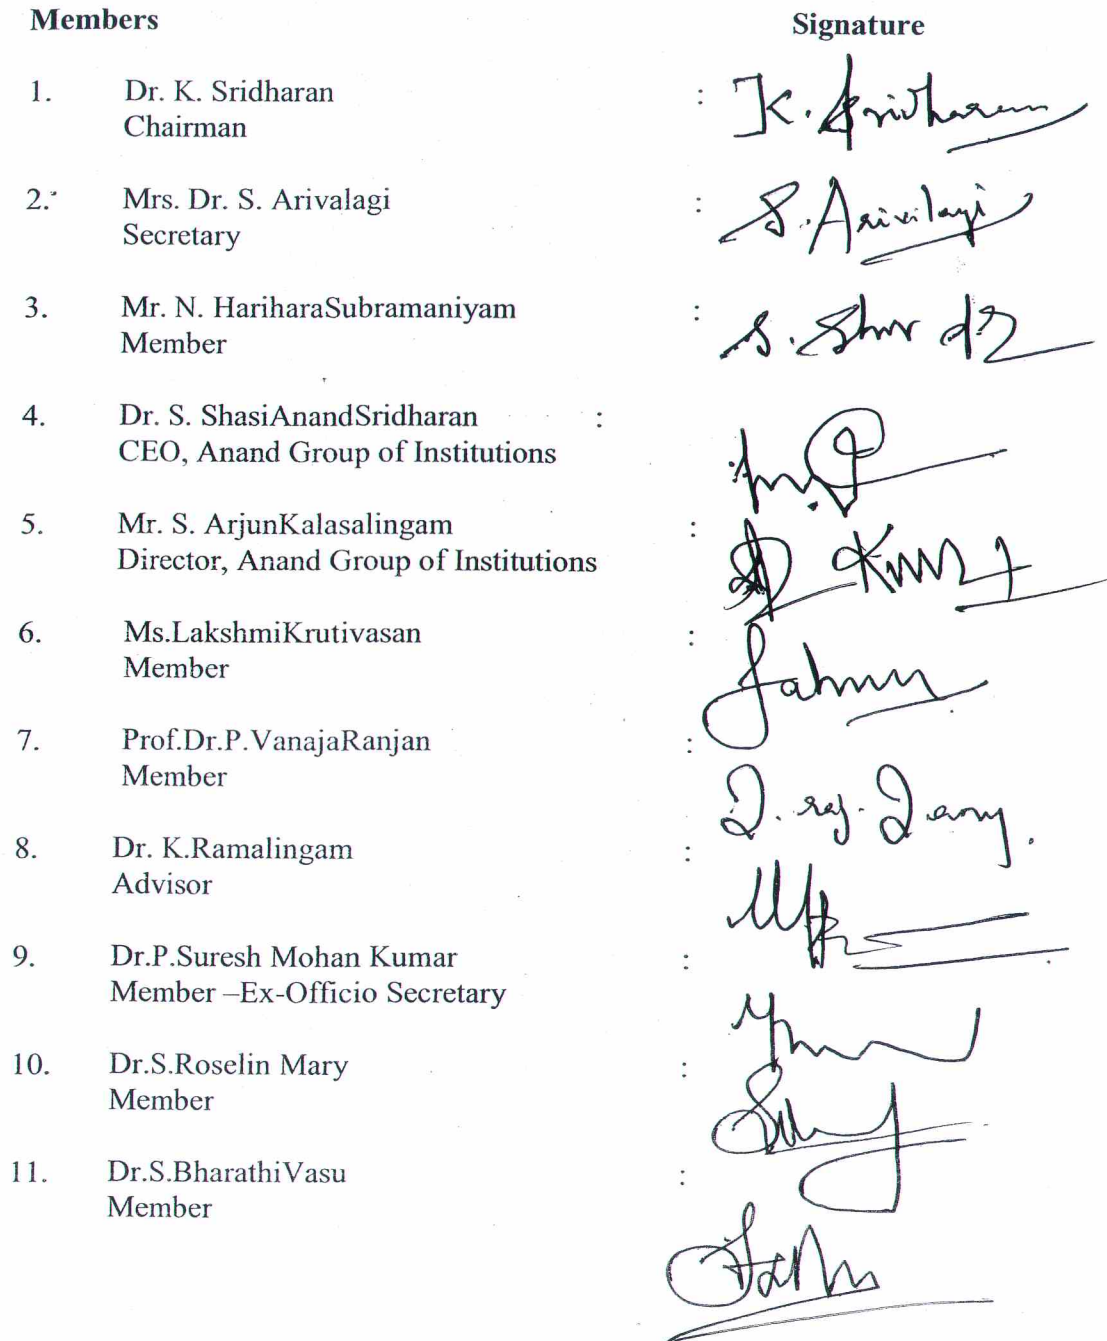 Members Signature
1. Dr. K. Sridharan : K. Sridharan
Chairman
2. Mrs. Dr. S. Arivalagi : S. Arivalagi
Secretary
3. Mr. N. HariharaSubramaniyam :
Member
4. Dr. S. ShasiAnandSridharan :
CEO, Anand Group of Institutions
5. Mr. S. ArjunKalasalingam :
Director, Anand Group of Institutions
6. Ms.LakshmiKrutivasan :
Member
7. Prof.Dr.P.VanajaRanjan :
Member
8. Dr. K.Ramalingam :
Advisor
9. Dr.P.Suresh Mohan Kumar :
Member –Ex-Officio Secretary
10. Dr.S.Roselin Mary :
Member
11. Dr.S.BharathiVasu :
Member